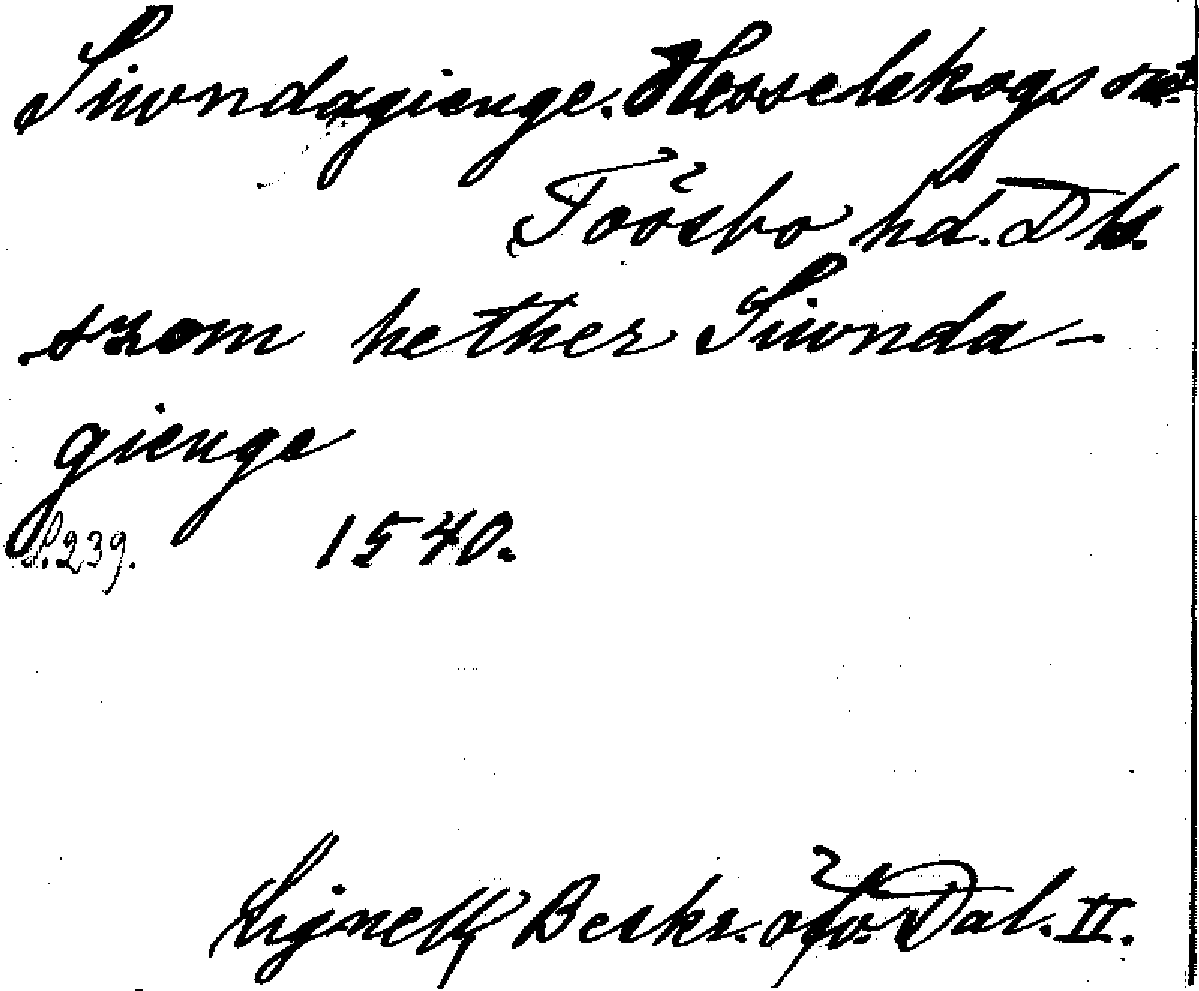 Siwndagienge. Hesselskogs sn.
Tössbo hd. Dls.
szom hether Siwnda-
gienge
S. 239. 1540.
Lignell, Beskr. öfv. Dal. II.